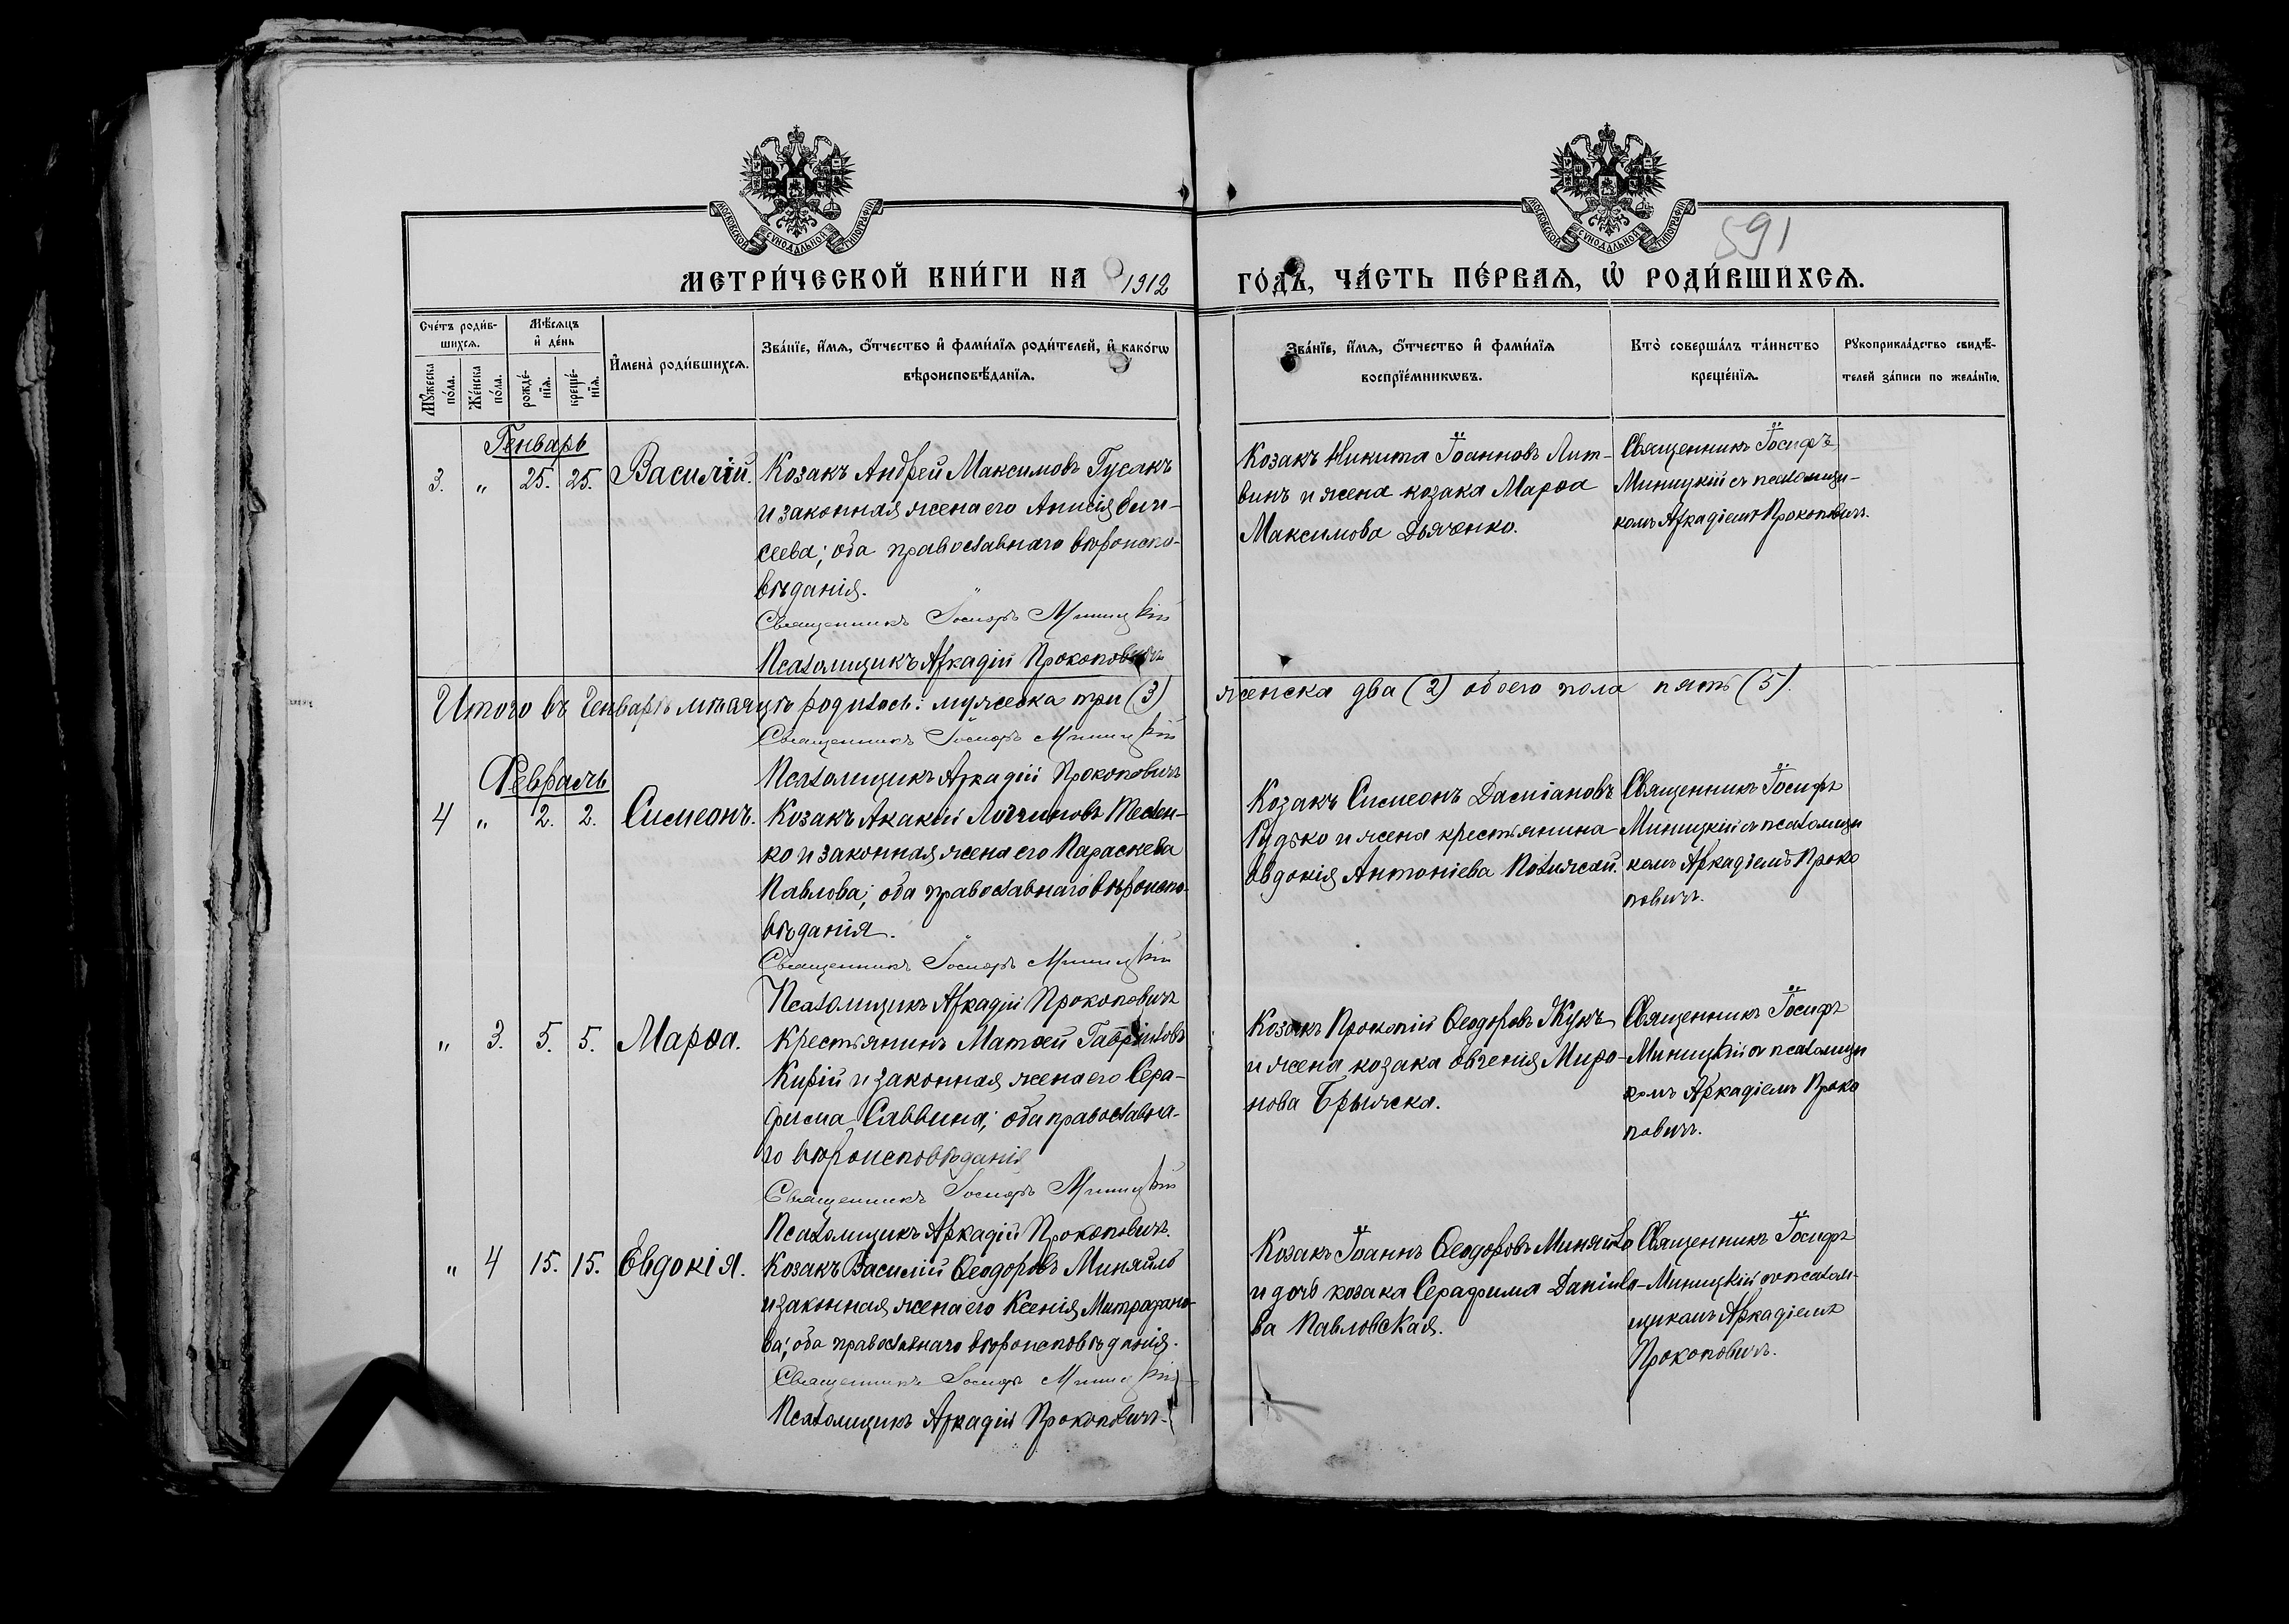 591
МЕТРИ́ЧЕСКОЙ КНИ́ГИ НА 1912 ГО́ДЪ, ЧА́СТЬ ПЕ́РВАЯ, Ѽ РОДИ́ВШИХСѦ.
МОСКОВСКОЙ СѴНОДАЛЬНОЙ ТИПОГРАФІИ
МОСКОВСКОЙ СѴНОДАЛЬНОЙ ТИПОГРАФІИ
Сче́тъ роди́в-
шихсѧ.
Мꙋжеска по́ла.
Же́нска по́ла.
Мѣ́сѧцъ
и҆ де́нь
рожде́-
нїѧ.
креще́-
нїѧ.
И҆мена̀ роди́вшихсѧ.
Зва́нїе, и҆́мѧ, ѻ҆́тчество и҆ фами́лїѧ роди́телей, и҆ како́гѡ
вѣроисповѣ́данїѧ.
Зва́нїе, и҆́мѧ, ѻ҆́тчество и҆ фами́лїѧ
воспрїе́мникѡвъ.
Кто̀ соверша́лъ та́инство
креще́нїѧ.
Рꙋкоприкла́дство свидѣ́-
телей за́писи по жела́нїю.
Генварь
3. " 25. 25. Василій.
Козакъ Андрей Максимовъ Гусакъ
и законная жена его Анисія Ели-
сеева; оба православнаго вѣроиспо-
вѣданія.
Священникъ Іосифъ Миницкій
Псаломщикъ Аркадій Прокоповичъ
Козакъ Никита Іоанновъ Лит-
винъ и жена козака Марѳа
Максимова Дьяченко.
Священникъ Іосифъ
Миницкій съ псаломщи-
комъ Аркадіемъ Прокоповичъ.
Итого въ Генварѣ мѣсяцѣ родилось: мужеска три (3) женска два (2) обоего пола пять (5).
Священникъ Іосифъ Миницкій
Псаломщикъ Аркадій Прокоповичъ
Февраль
4 " 2. 2. Симеонъ.
Козакъ Акакій Логгиновъ Теслен-
ко и законная жена его Параскева
Павлова; оба православнаго вѣроиспо-
вѣданія.
Священникъ Іосифъ Миницкій
Псаломщикъ Аркадій Прокоповичъ
Козакъ Симеонъ Даміановъ
Рудько и жена крестьянина
Евдокія Антоніева
Священникъ Іосифъ
Миницкій съ псаломщи
комъ Аркадіемъ Проко
повичъ.
" 3. 5. 5. Марѳа.
Крестьянинъ Матѳей Гавріиловъ
Кирій и законная жена его Сера-
фима Саввина; оба православна-
го вѣроисповѣданія
Священникъ Іосифъ Миницкій
Псаломщикъ Аркадій Прокоповичъ.
Козакъ Прокопій Ѳеодоровъ Жукъ
и жена козака Евгенія Миро-
нова
Священникъ Іосифъ
Миницкій съ псаломщи
комъ Аркадіемъ Проко
повичъ.
" 4 15. 15. Евдокія.
Козакъ Василій Ѳеодоровъ Миняйло
и законная жена его Ксенія Митрофано-
ва; оба православнаго вѣроисповѣданія.
Священникъ Іосифъ Миницкій
Псаломщикъ Аркадій Прокоповичъ.
Козакъ Іоаннъ Ѳеодоровъ Миняйло
и дочь козака Серафима Даніило-
ва Павловская.
Священникъ Іосифъ
Миницкій съ псалом-
щикомъ Аркадіемъ
Прокоповичъ.